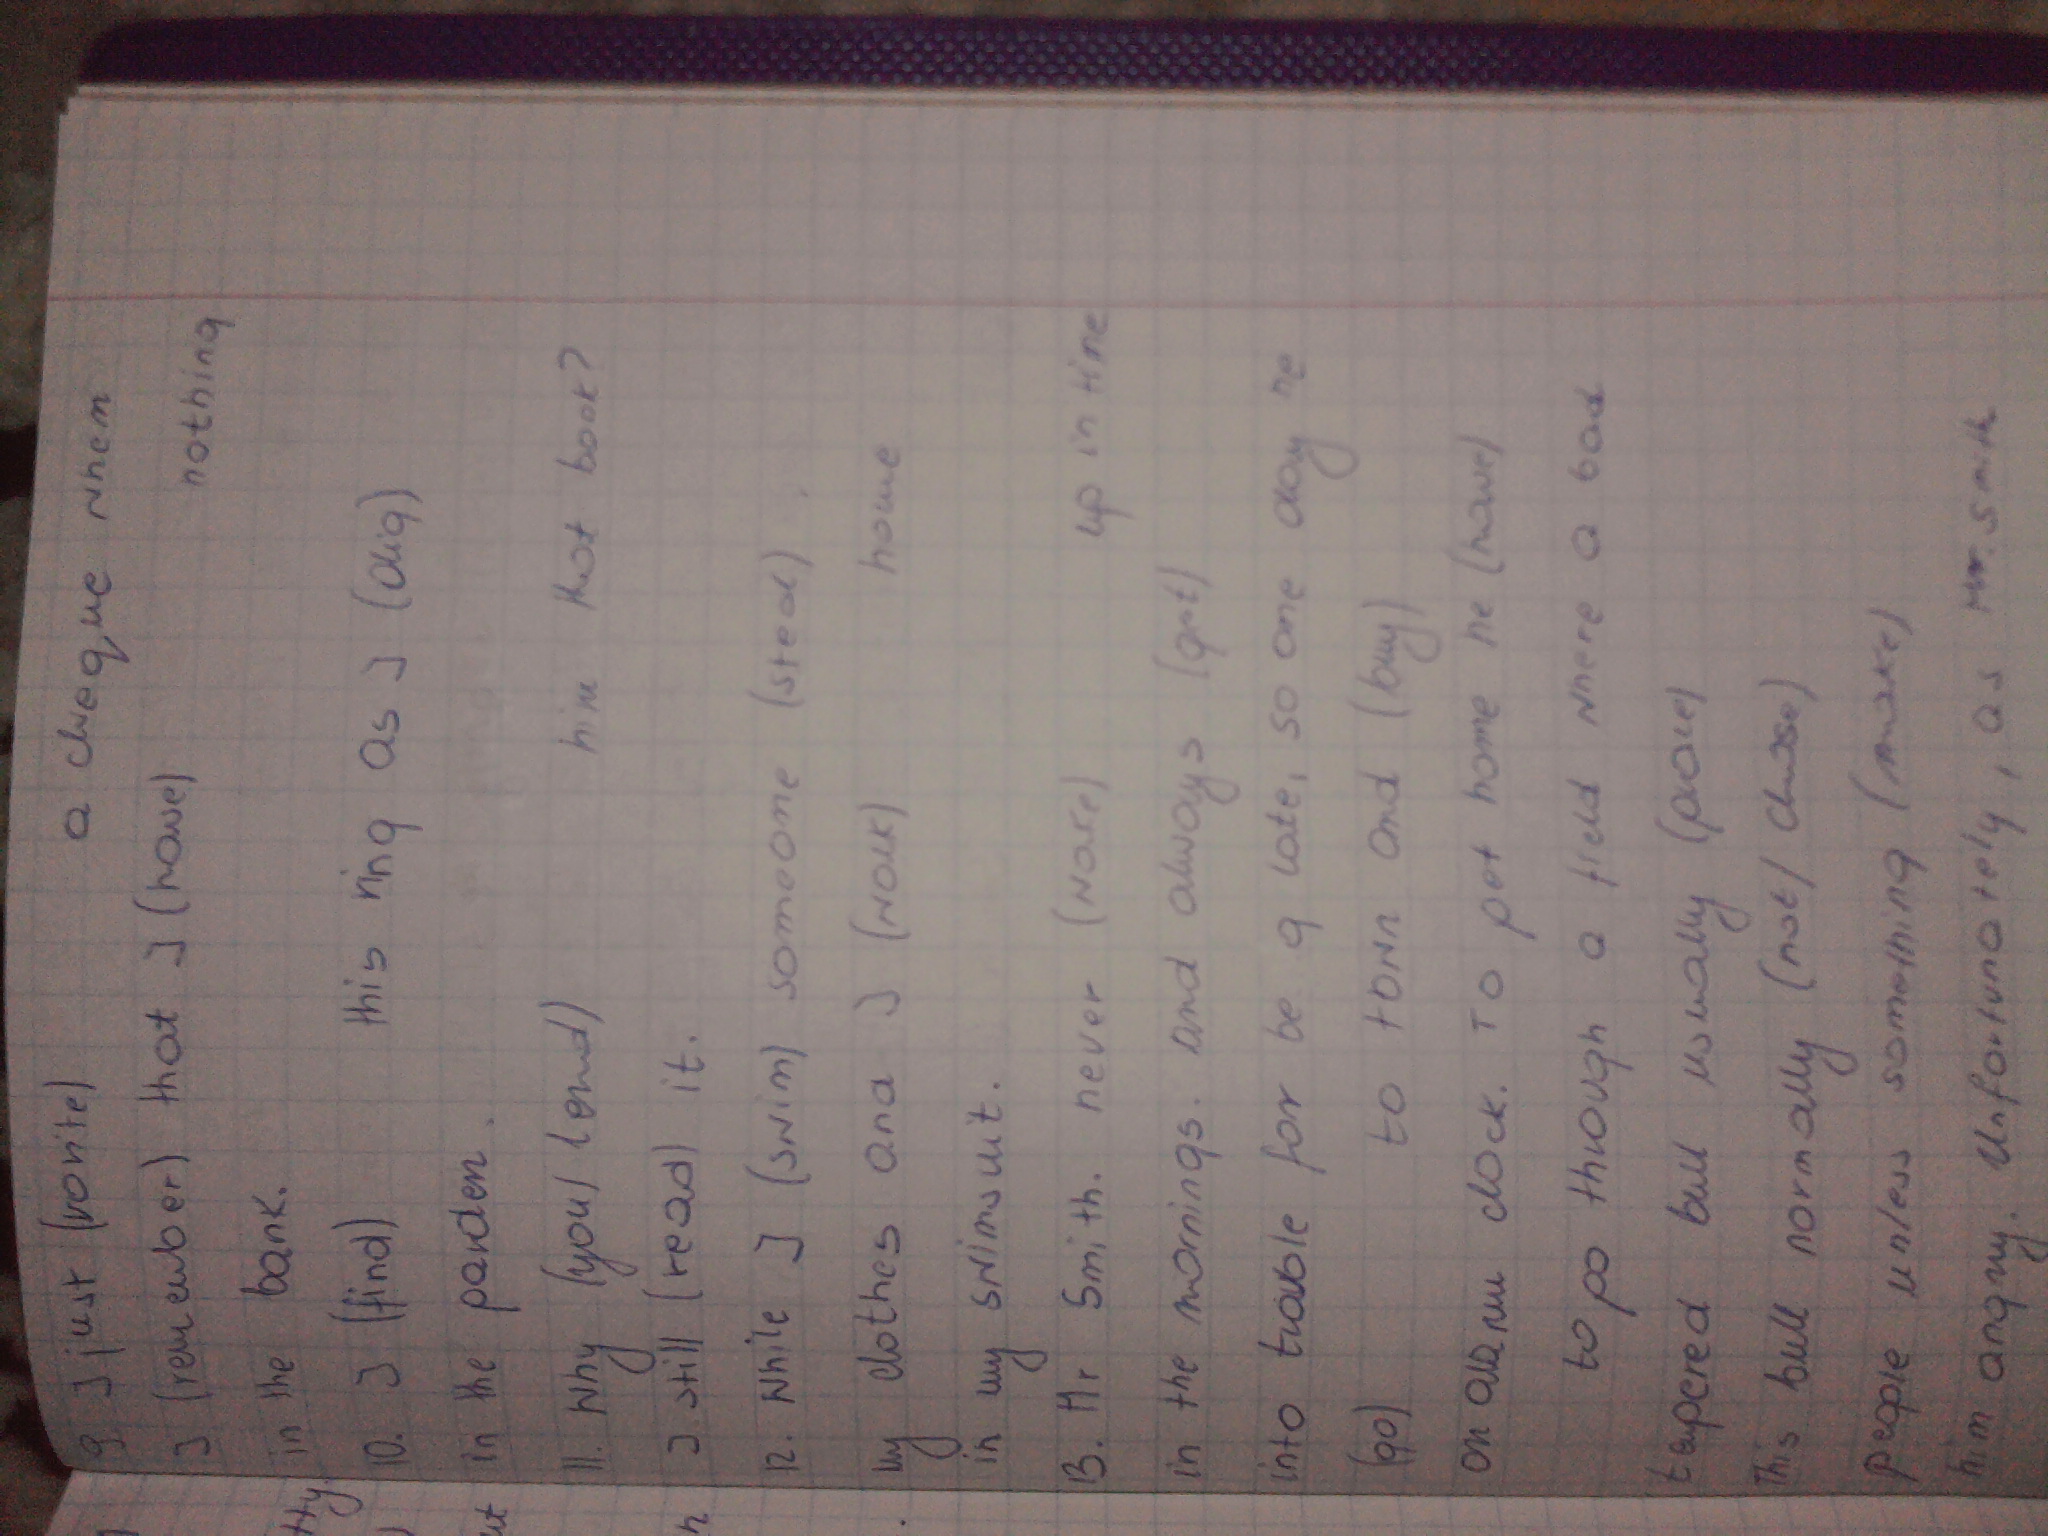 9. I just (vorite) a cheque when
I (remember) that I (have) nothing
in the bank.
10. I (find) this ring as I (dig)
in the garden.
11. Why (you/ lend) him that book?
I still (read) it.
12. While I (swim) someone (steal)
my clothes and I (walk) home
in my swimsuit.
13. Mr Smith. never (wake) up in time
in the mornings. and always (get)
into trouble for be g late, so one day he
(go) to town and (buy)
an alarm clock. To get home he (have)
to go though a field where a bad
tempered bull usually (graze)
This bull normally (not/ chase)
people unless something (make)
him angry. Unfortunately, as Mr. Smith